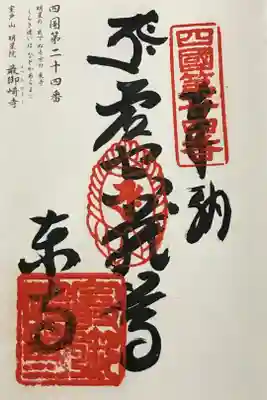 四國第廿四番
奉納
虚空蔵尊
東寺
四国第二十四番
明星の 出でぬる方の 東寺
くらき迷いは などか
室戸山 明星院 最御崎寺